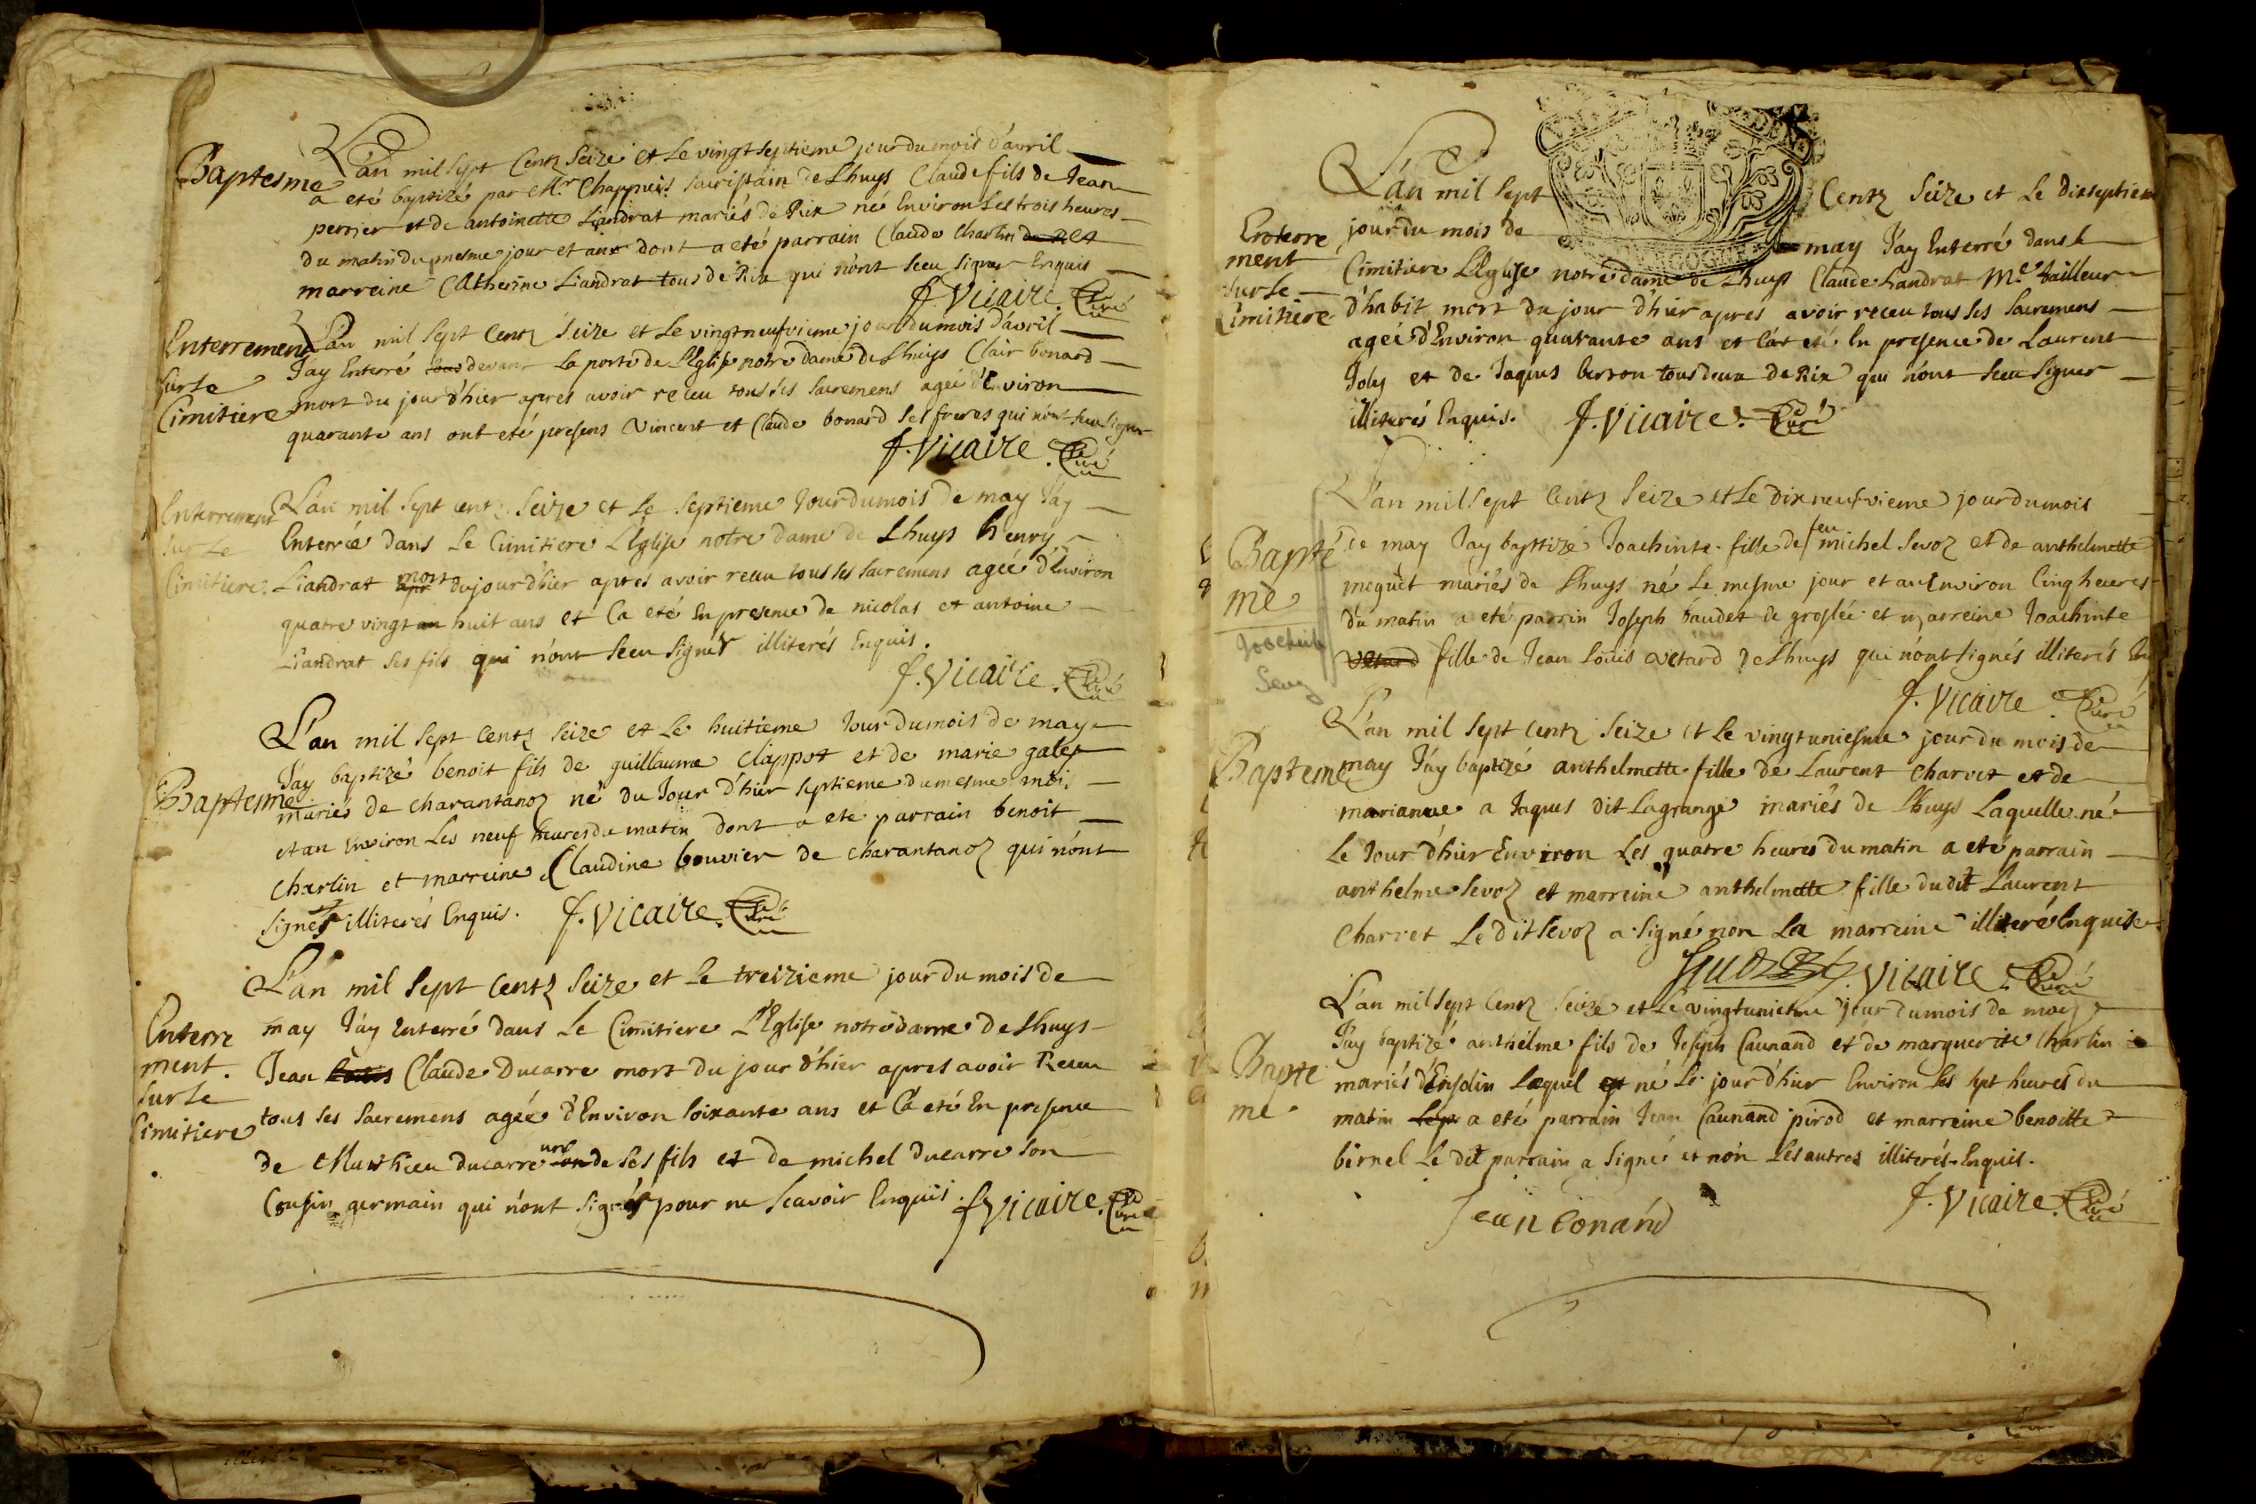 Baptesme
L'an mil sept Centz Seize et le vingt septieme jour du mois d'avril
a eté baptizé par Mr Chappuis sacristain de Lhuys Claude fils de Jean
perrier et de antoinette Liandrat mariés de Rix né Environ les trois heures
du matin du mesme jour et an dont a eté parrain Claude Charlin de Rix et
marreine Catherine Liandrat tous de Rix qui n'ont sceu signer Enquis
f. Vicaire. Curé
Enterrement
sur le
Cimitiere
L'an mil sept Centz Seize et le vingt neufvieme jour du mois d'avril
J'ay Enterré devant la porte de L'Eglise notre dame de Lhuys Clair bonard
mort du jour d'hier apres avoir receu tous ses sacremens agée d'Environ
quarante ans ont eté presens Vincent et Claude bonard ses freres qui n'ont sceu signer
f. Vicaire. Curé
Enterrement
sur Le
Cimitiere.
L'an mil sept centz Seize et le septieme Jour du mois de may J'ay
Enterrée dans Le Cimitiere L'Eglise notre dame de Lhuys henry
Liandrat mort du jour d'hier apres avoir receu tous ses sacremens agée d'Environ
quatre vingt huit ans et Ca eté En presence de nicolas et antoine
Liandrat ses fils qui n'ont sceu signer illiterés Enquis.
f. Vicaire. Curé
Baptesme
L'an mil sept centz Seize et Le huitieme Jour du mois de may
J'ay baptizé benoit fils de guillaume Clappot et de marie galey
mariés de charantanoz né du Jour d'hier septieme du mesme mois
et an Environ Les neuf heures du matin dont a eté parrain benoit
charlin et marreine Claudine bouvier de charantanoz qui n'ont
signés illiterés Enquis. f. Vicaire. Curé
Enterre
ment.
sur Le
Cimitiere
L'an mil sept Centz Seize et Le treizieme jour du mois de
may J'ay Enterré dans Le Cimitiere L'Eglise notre dame de Lhuys
Jean Louis Claude Ducarre mort du jour d'hier apres avoir Receu
tous ses sacremens agée d'Environ soixante ans et Ca eté En presence
de Matthieu ducarre un de ses fils et de michel ducarre son
Cousin germain qui n'ont signés pour ne scavoir Enquis. f. Vicaire. Curé
Enterre
ment
sur Le
Cimitiere
L'an mil sept Centz Seize et Le dixseptiem
jour du mois de may J'ay Enterré dans le
Cimitiere L'Eglise notre dame de Lhuys Claude Landrat Me tailleur
d'habit mort du jour d'hier apres avoir receu tous ses sacremens
agée d'Environ quarante ans et Ca eté En presence de Laurent
Joly et de Jaques berron tous deux de Rix qui n'ont sceu signer
illiterés Enquis. f. Vicaire. Curé
Bapte
me
L'an mil sept Centz Seize et Le dix neufvieme jour du mois
de may J'ay baptizé Joachinte fille de feu michel Sevoz et de anthelmette
moquet mariés de Lhuys né Le mesme jour et an Environ Cinq heures
du matin a eté parrin Joseph baudet de groslée et marreine Joachinte
vetard fille de Jean Louis vetard de Lhuys qui n'ont signés illiterés
f. Vicaire. Curé
Bapteme
L'an mil sept centz Seize et Le vingt uniesme jour du mois de
may J'ay baptizé anthelmette fille de Laurent Charvet et de
marianne a Jaques dit Lagrange mariés de Lhuys Laquelle né
Le Jour d'hier Environ Les quatre heures du matin a eté parrain
anthelme Sevoz et marreine anthelmette fille du dit Laurent
Charvet Le dit Sevoz a signé non La marreine illiteré Enquise
f. Vicaire. Curé
Bapte
me.
L'an mil sept Centz Seize et Le vingt unieme jour du mois de may
J'ay baptizé anthelme fils de Joseph Caunand et de marguerite charlin
mariés d'Ensolin Lequel est né Le jour d'hier Environ Les sept heures du
matin a eté parrain Jean Caunand pirod et marreine benoitte
birnel Le dit parrain a signé et non Les autres illiterés Enquis.
f. Vicaire. Curé
Jean Conand